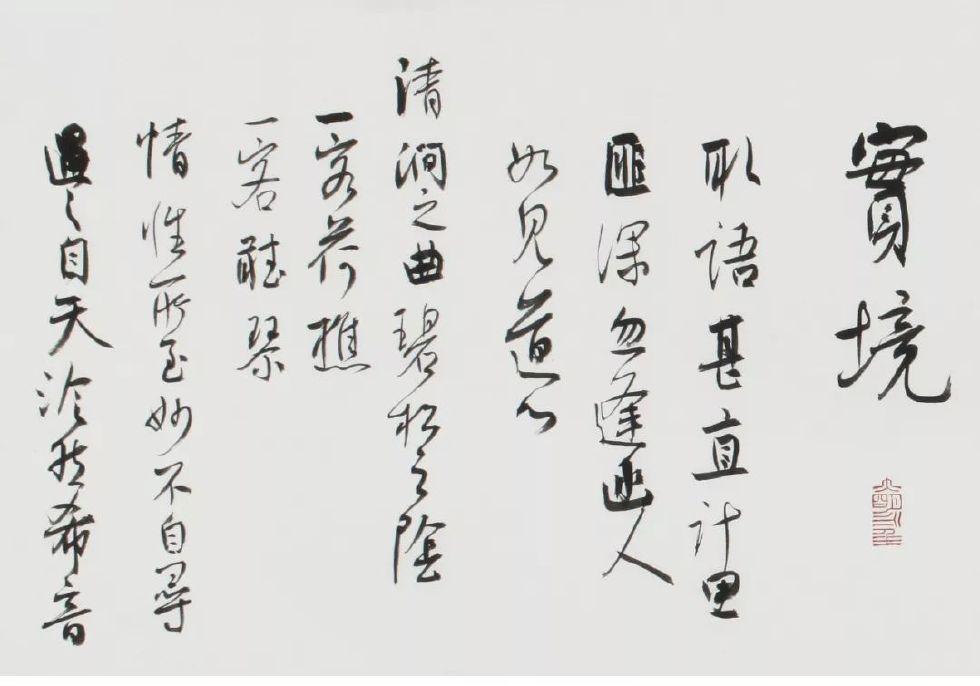 實境
取語甚直計思
匪深忽逢幽人
如見道心
清澗之曲碧松之陰
一客荷樵
一客聽琴
情性所至妙不自尋
遇之自天泠然希音